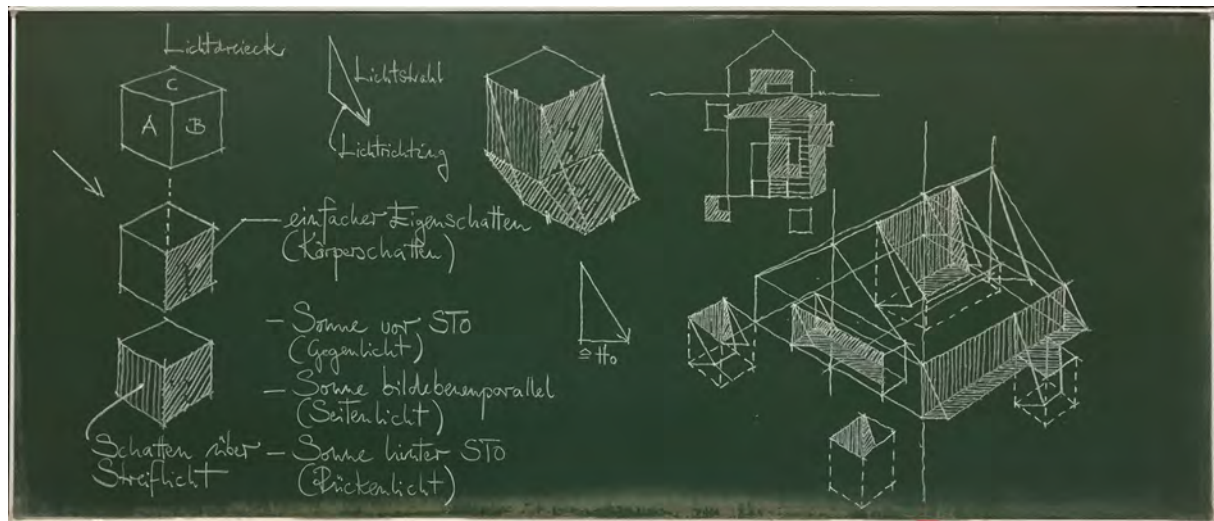 Lichtdreieck
C
A B
Lichtstrahl
Lichtrichtung
einfacher Eigenschatten
(Körperschatten)
- Sonne vor STO
(Gegenlicht)
- Sonne bildebenenparallel
(Seitenlicht)
- Sonne hinter STO
(Rückenlicht)
Schatten über
Streiflicht
≙ H₀